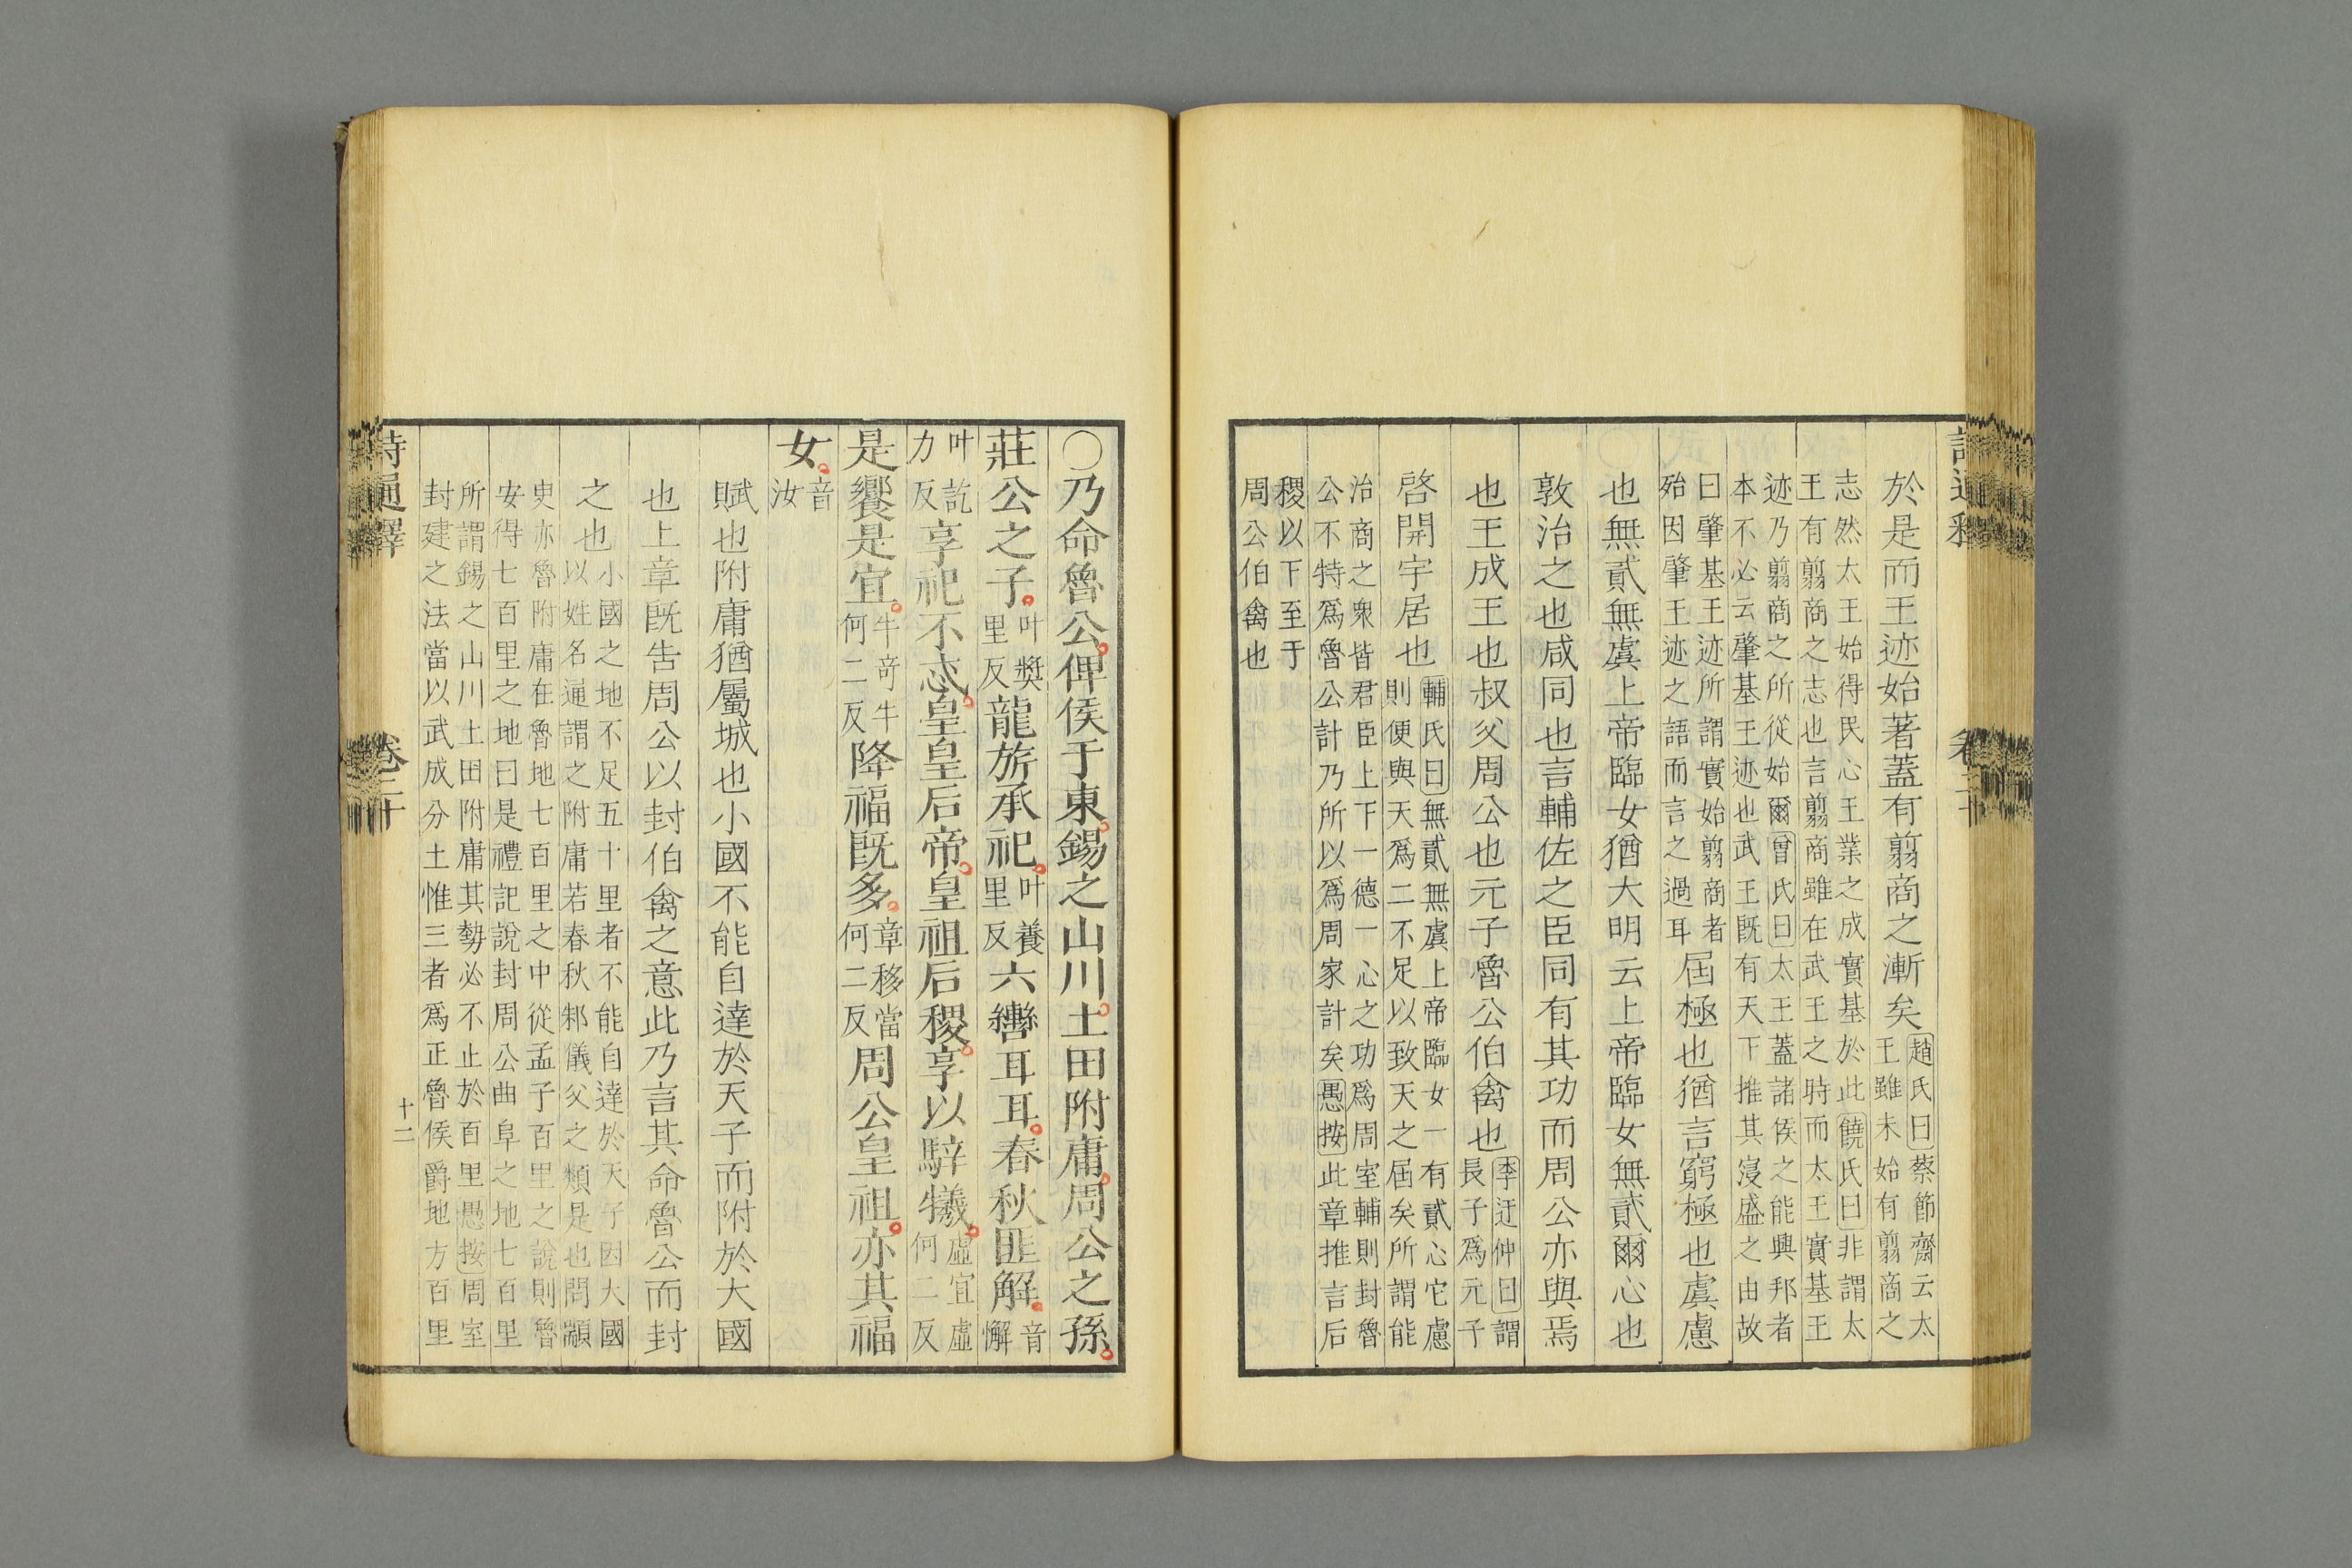 於是而王迹始著蓋有翦商之漸矣
趙氏曰蔡節齋云太
王雖未始有翦商之
志然太王始得民心王業之成實基於此饒氏曰非謂太
王有翦商之志也言翦商雖在武王之時而太王實基王
迹乃翦商之所從始爾曾氏曰太王蓋諸侯之能興邦者
本不必云肇基王迹也武王既有天下推其寖盛之由故
曰肇基王迹所謂實始翦商者
殆因肇王迹之語而言之過耳
屆極也猶言窮極也虞慮
也無貳無虞上帝臨女猶大明云上帝臨女無貳爾心也
敦治之也咸同也言輔佐之臣同有其功而周公亦與焉
也王成王也叔父周公也元子魯公伯禽也
李迂仲曰謂
長子爲元子
啓開宇居也
輔氏曰無貳無虞上帝臨女一有貳心它慮
則便與天爲二不足以致天之屆矣所謂能
治商之衆皆君臣上下一德一心之功爲周室輔則封魯
公不特爲魯公計乃所以爲周家計矣愚按此章推言后
稷以下至于
周公伯禽也
〇乃命魯公俾侯于東錫之山川土田附庸周公之孫
莊公之子
叶奬
里反
龍旂承祀
叶養
里反
六轡耳耳春秋匪解
音
懈
叶訖
力反
享祀不忒皇皇后帝皇祖后稷享以騂犧
虛宜虛
何二反
是饗是宜
牛奇牛
何二反
降福既多
章移當
何二反
周公皇祖亦其福
女
音
汝
賦也附庸猶屬城也小國不能自達於天子而附於大國
也上章既告周公以封伯禽之意此乃言其命魯公而封
之也
小國之地不足五十里者不能自達於天子因大國
以姓名通謂之附庸若春秋邾儀父之類是也問顓
臾亦魯附庸在魯地七百里之中從孟子百里之說則魯
安得七百里之地曰是禮記說封周公曲阜之地七百里
所謂錫之山川土田附庸其勢必不止於百里愚按周室
封建之法當以武成分土惟三者爲正魯侯爵地方百里
詩通釋 卷二十
十二